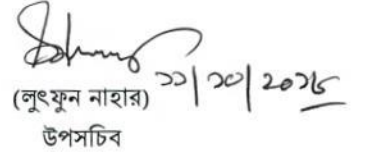 (লুৎফুন নাহার) ১১|১০|২০১৮
উপসচিব